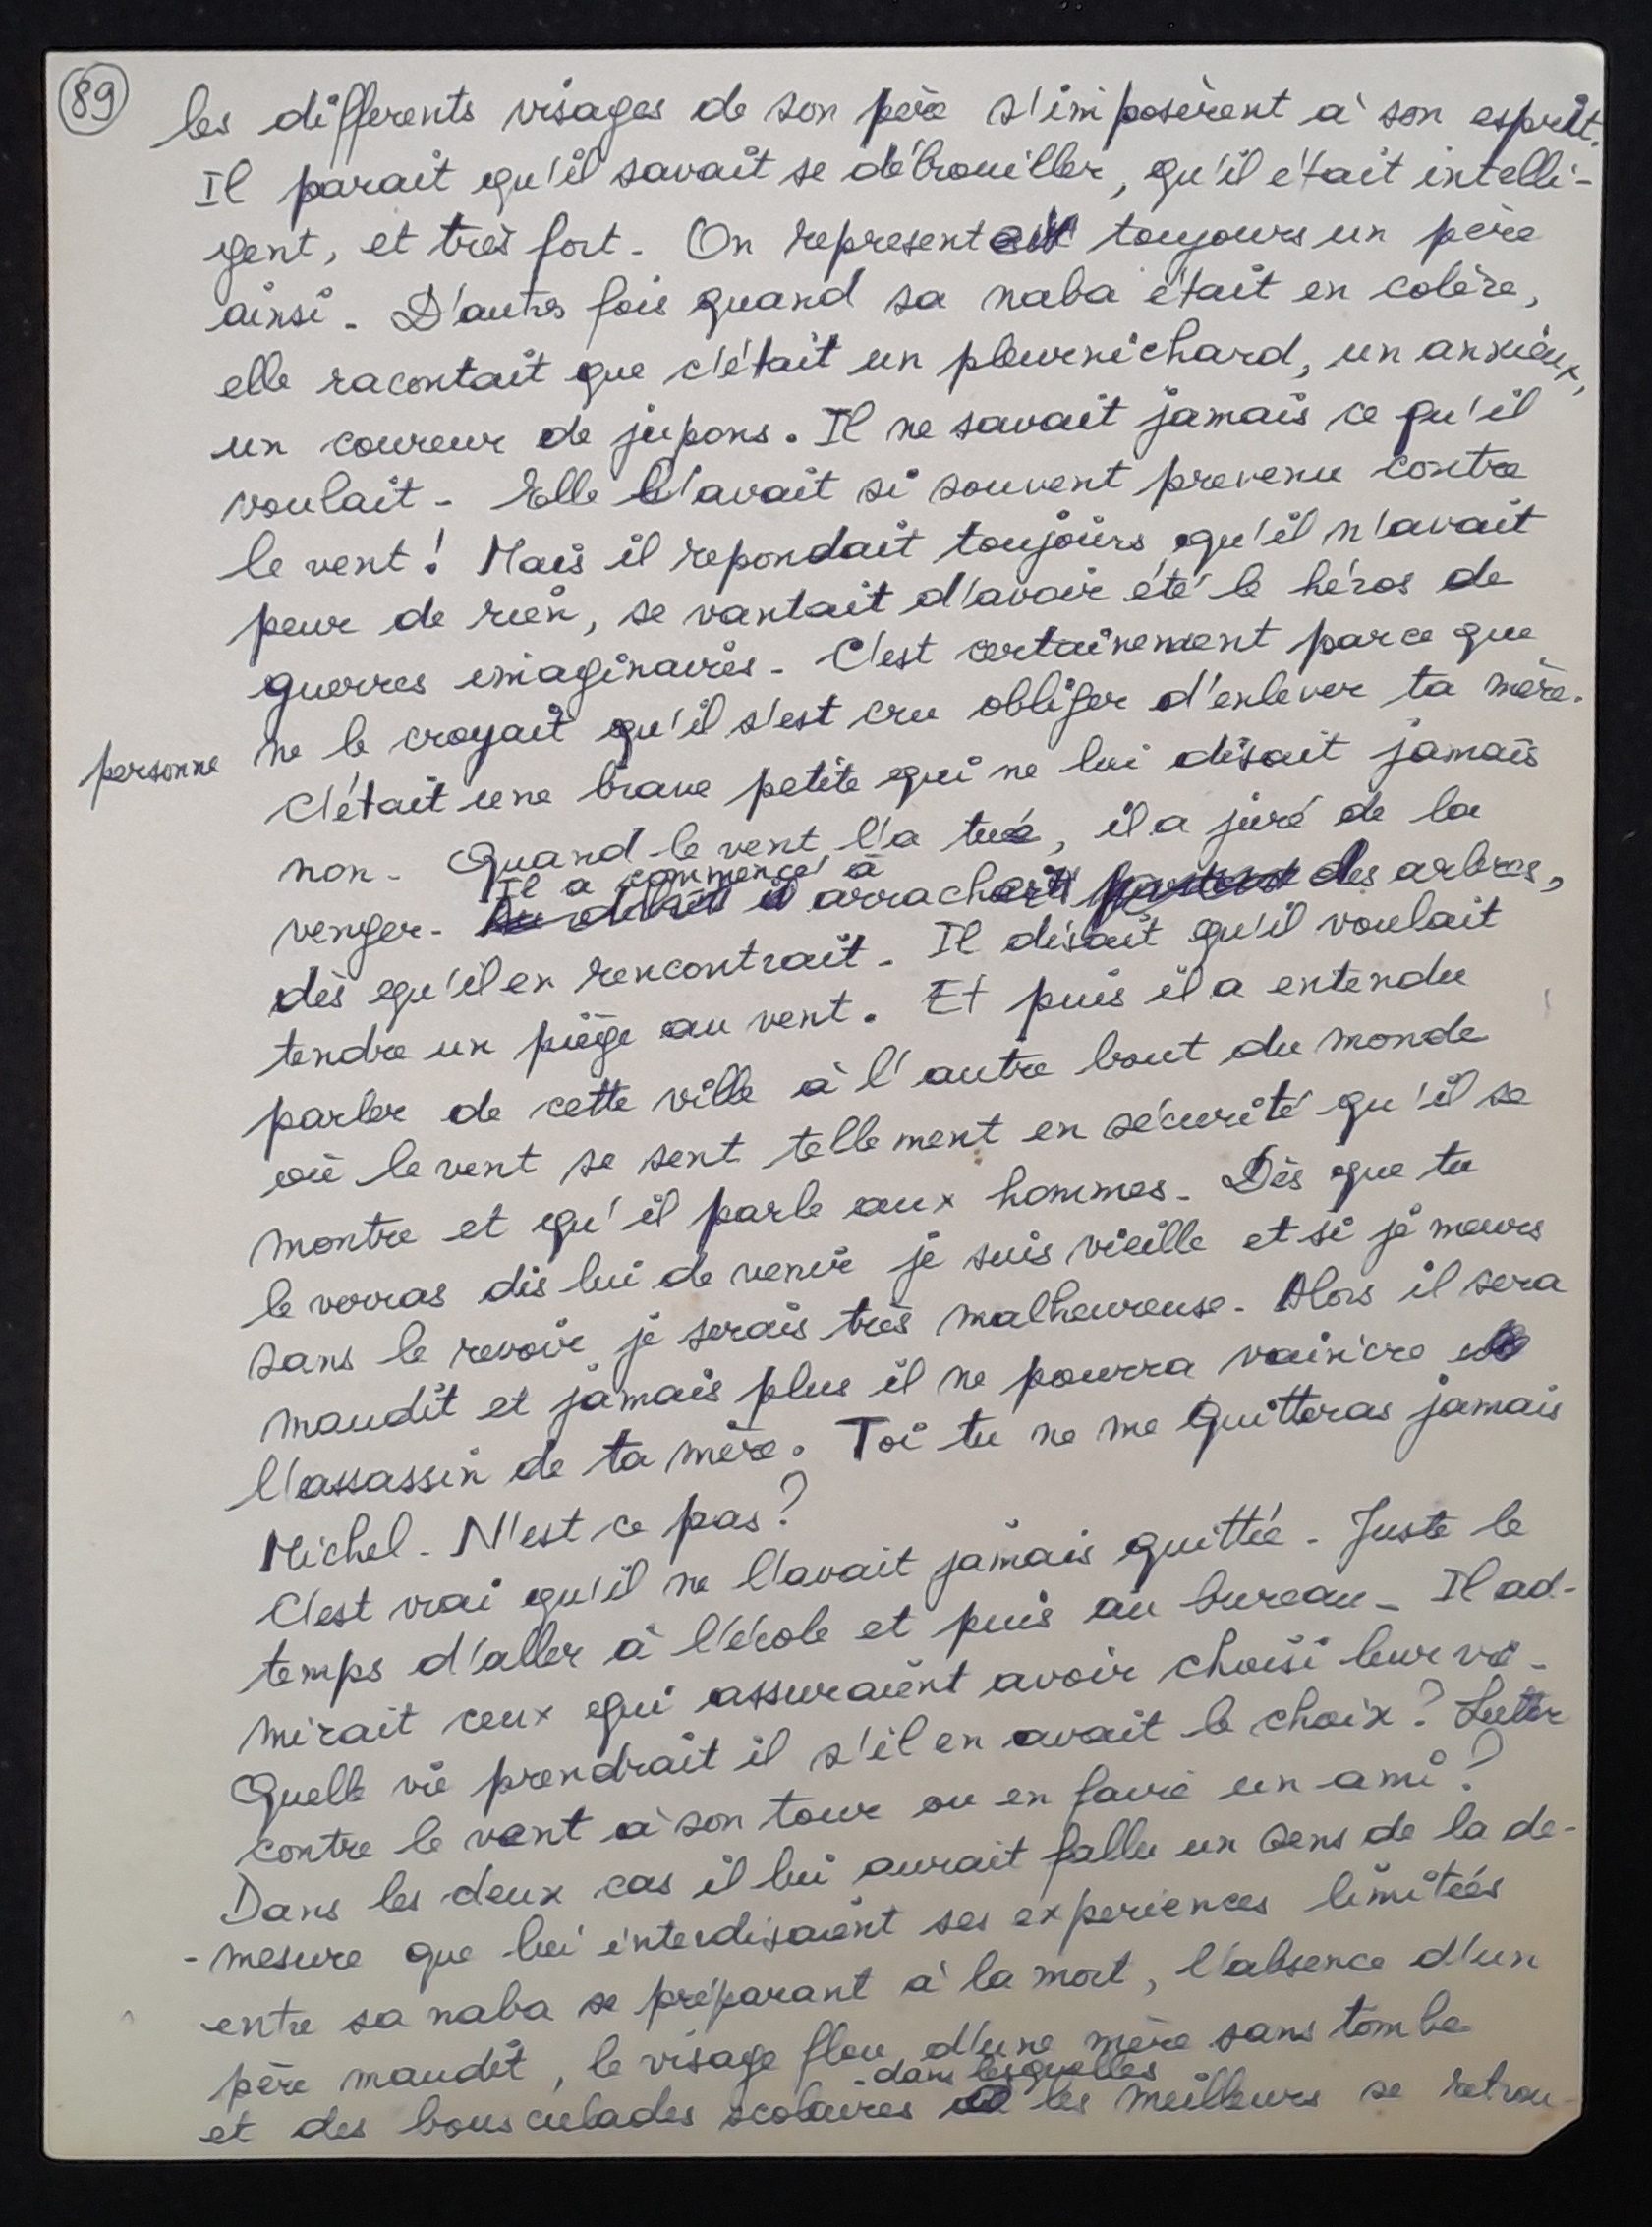 89
les differents visages de son père s'imposèrent à son esprit.
Il parait qu'il savait se débrouiller, qu'il était intelli-
gent, et très fort. On represent toujours un père
ainsi. D'autres fois quand sa naba était en colère,
elle racontait que c'était un pleurnichard, un anxieux,
un coureur de jupons. Il ne savait jamais ce qu'il
voulait. Elle l'avait si souvent prevenu contre
le vent! Mais il repondait toujours qu'il n'avait
peur de rien, se vantait d'avoir été le héros de
guerres imaginaires. C'est certainement parce que
personne ne le croyait qu'il s'est cru obliger d'enlever ta mère.
C'était une brave petite qui ne lui disait jamais
non. Quand le vent l'a tué, il a juré de la
Il a commencé à
venger. arracher des arbres,
dès qu'il en rencontrait. Il disait qu'il voulait
tendre un piège au vent. Et puis il a entendu
parler de cette ville à l'autre bout du monde
où le vent se sent tellement en sécurité qu'il se
montre et qu'il parle aux hommes. Dès que tu
le verras dis lui de venir je suis vieille et si je meurs
sans le revoir je serais très malheureuse. Alors il sera
maudit et jamais plus il ne pourra vaincre
l'assassin de ta mère. Toi tu ne me quitteras jamais
Michel. N'est ce pas?
C'est vrai qu'il ne l'avait jamais quittée. Juste le
temps d'aller à l'école et puis au bureau. Il ad-
mirait ceux qui assuraient avoir choisi leur vie.
Quelle vie prendrait il s'il en avait le choix? Lutter
contre le vent à son tour ou en faire un ami?
Dans les deux cas il lui aurait fallu un sens de la de-
-mesure que lui interdisaient ses experiences limitées
entre sa naba se préparant à la mort, l'absence d'un
père maudit, le visage flou d'une mère sans tombe
dans lesquelles
et des bousculades scolaires les meilleurs se retrou-